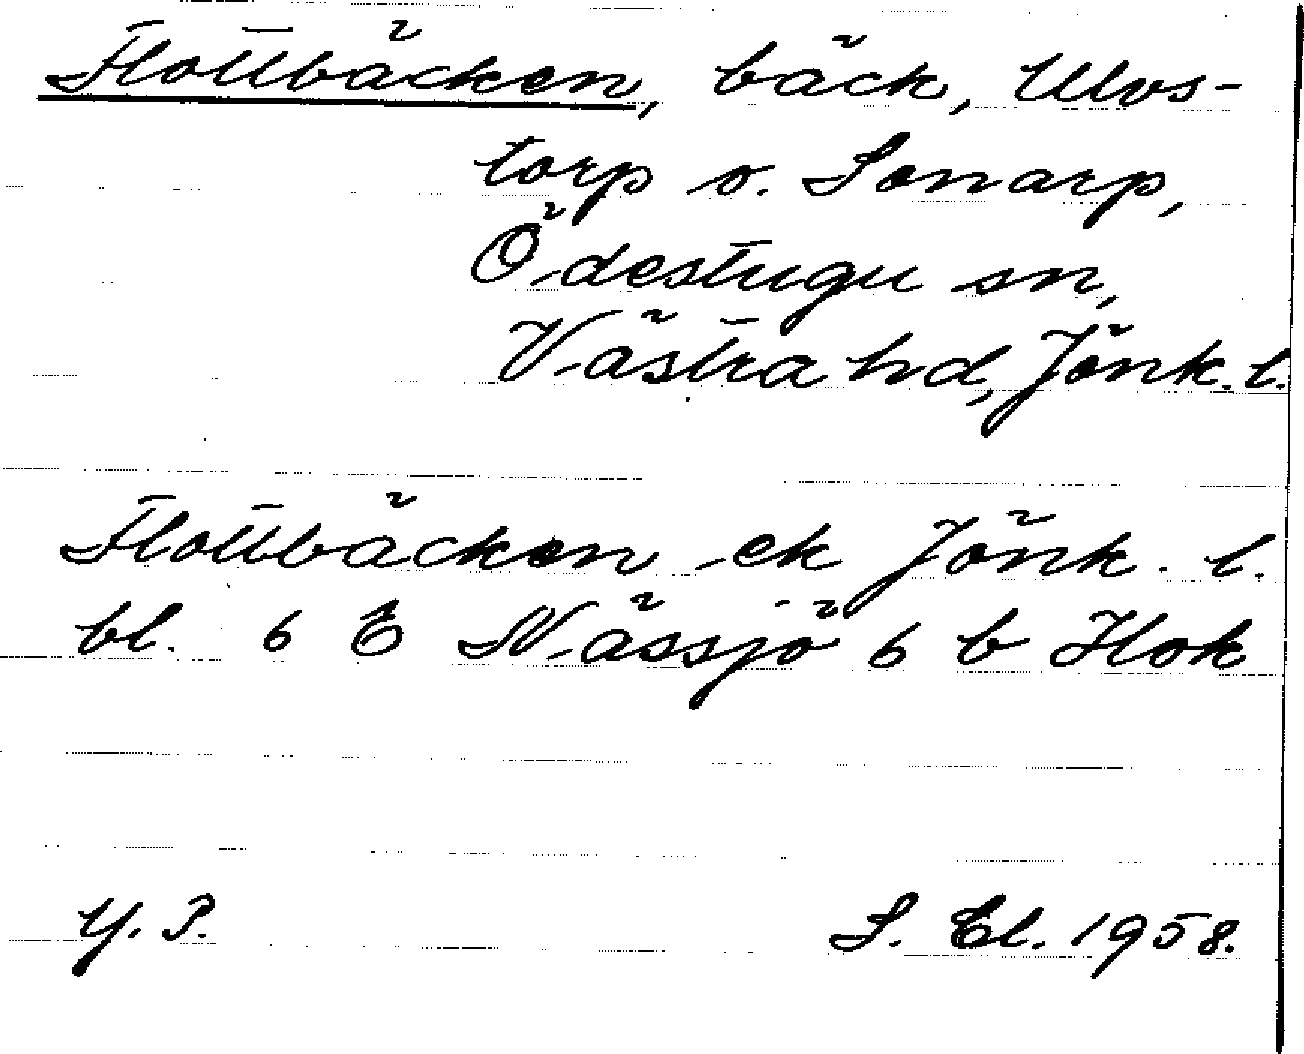 Flottbäcken, bäck, Ulvs-
torp o. Sonarp,
Ödestugu sn,
Västra hd, Jönk. l.
Flottbäcken ek Jönk. l.
bl. 6 E Nässjö 6 b Hok
Y. P.
S. El. 1958.